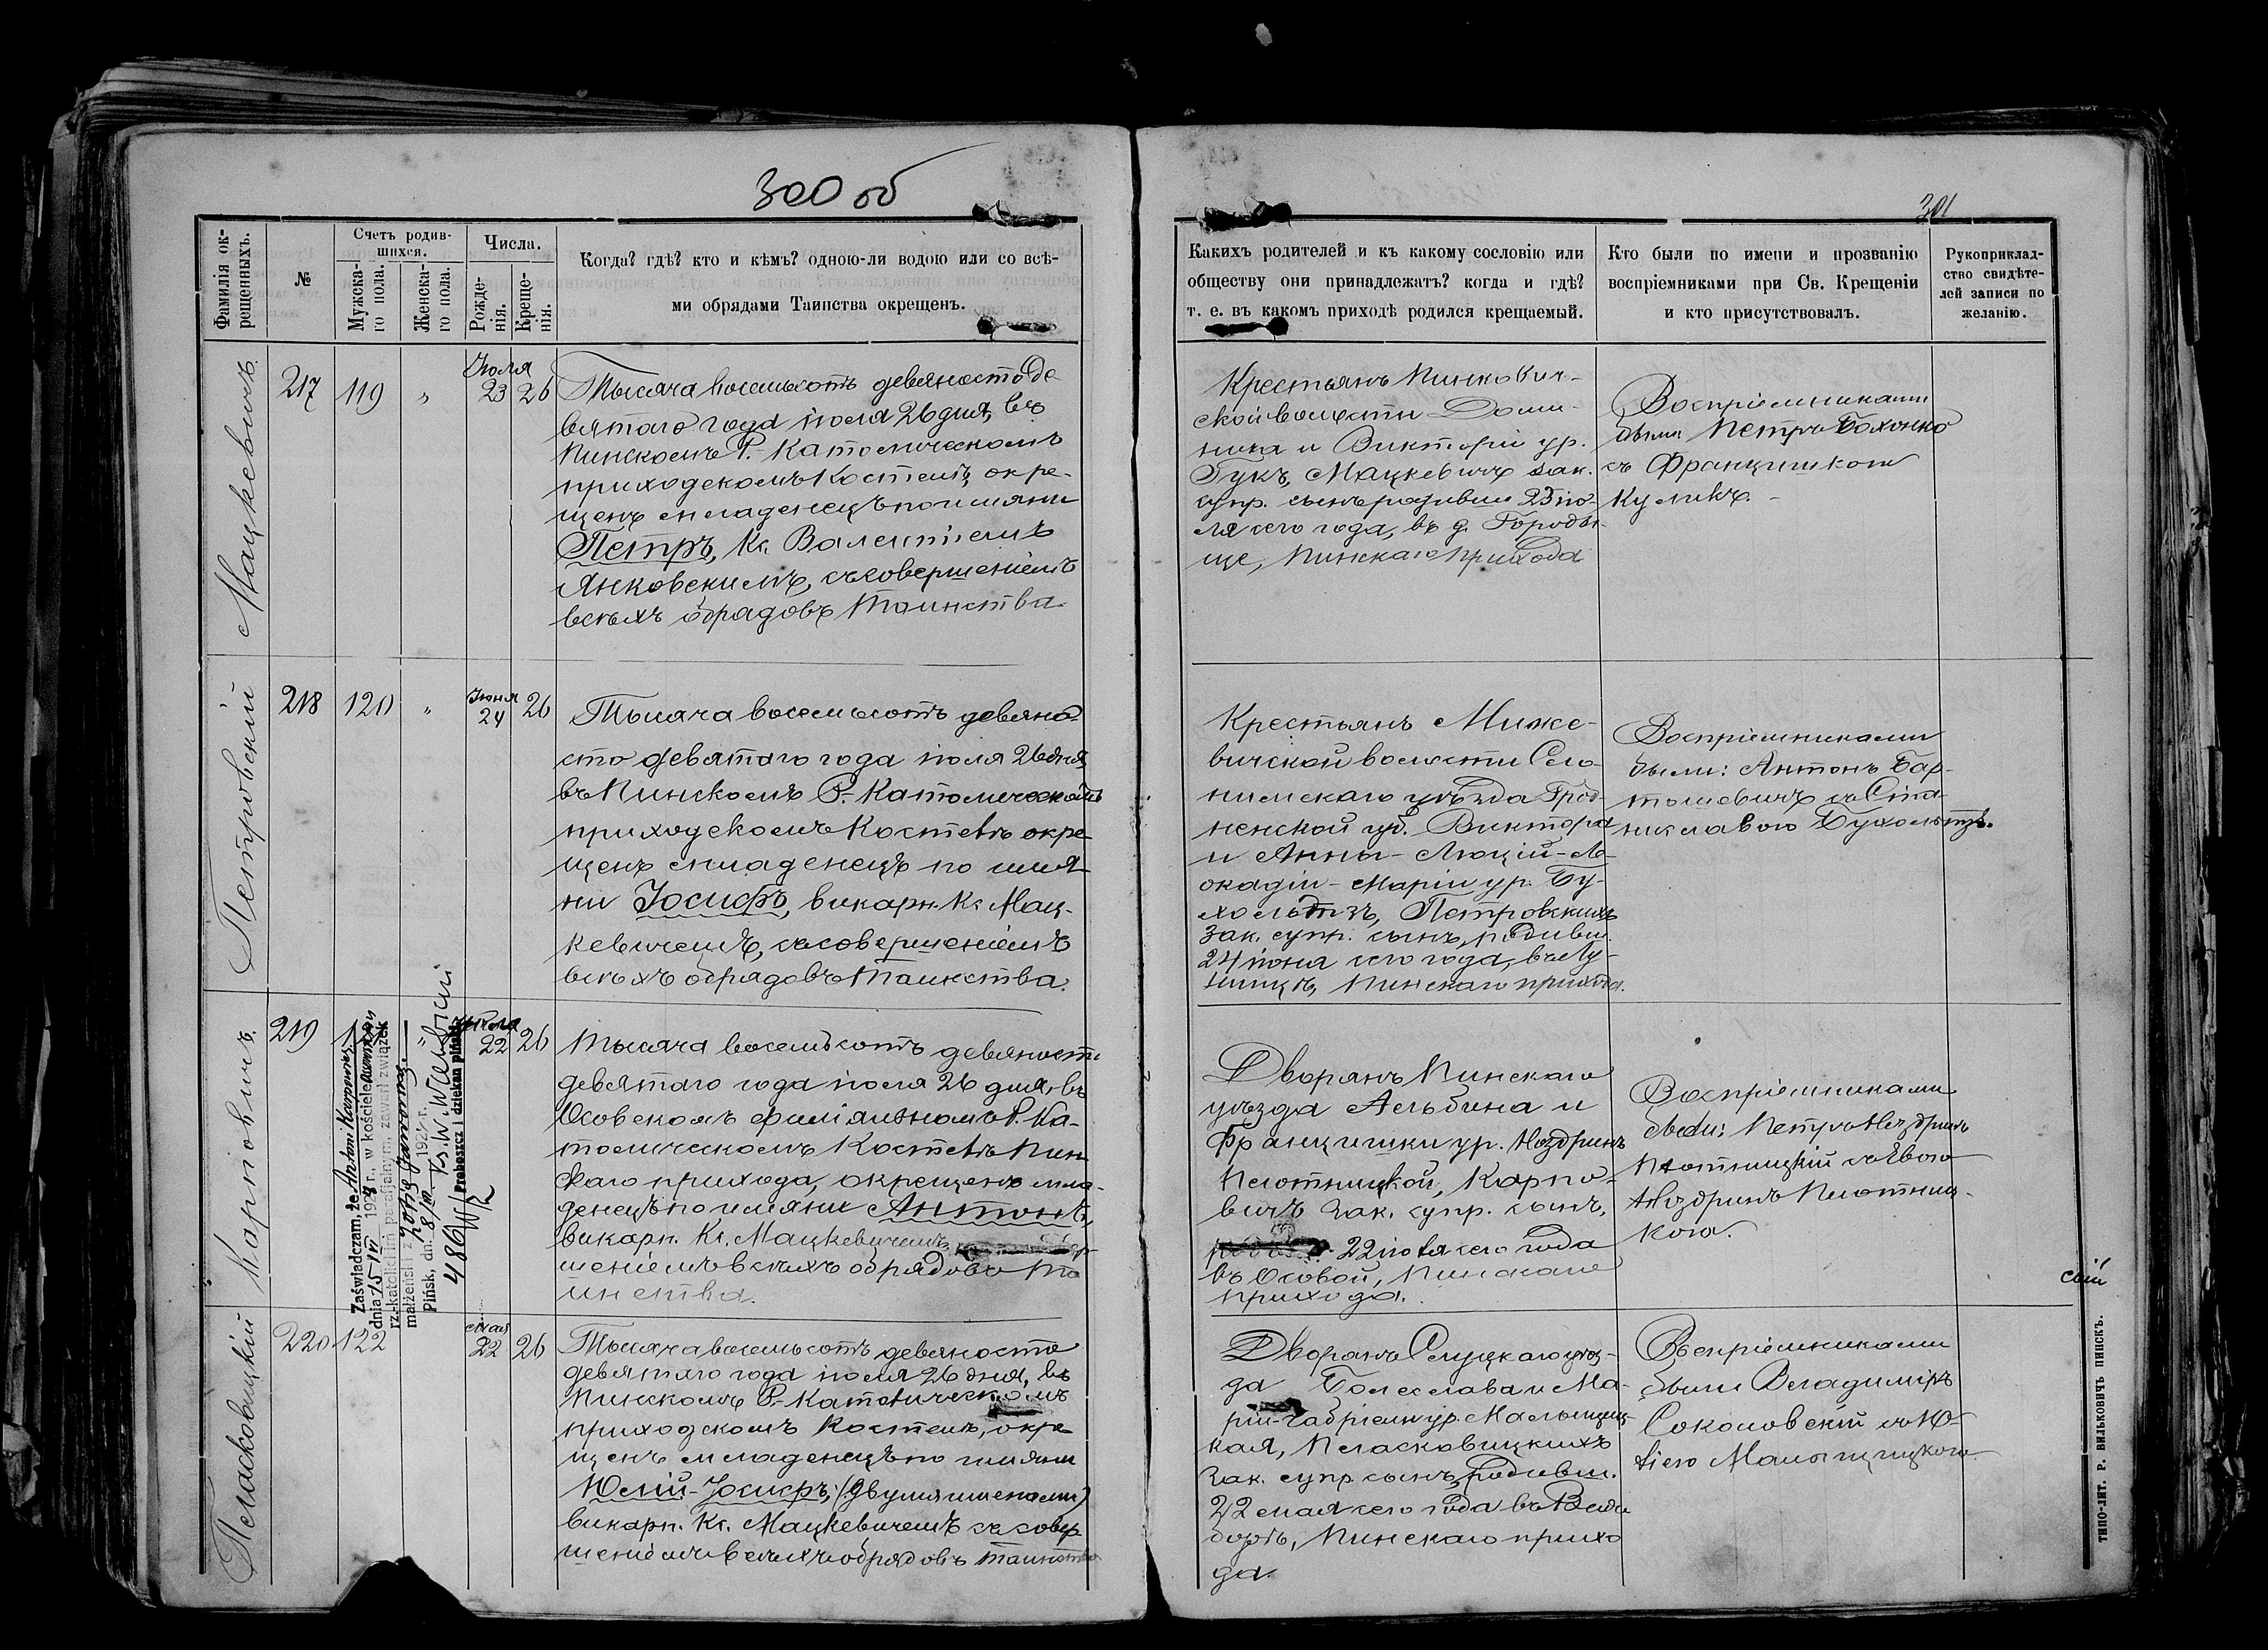 300 об
301
Фамилія ок-
рещенныхъ.
№
Счетъ родив-
шихся.
Мужска-
го пола.
Женска-
го пола.
Числа.
Рожде-
нія.
Креще-
нія.
Когда? гдѣ? кто и кѣмъ? одною-ли водою или со всѣ-
ми обрядами Таинства окрещенъ.
Какихъ родителей и къ какому сословію или
обществу они принадлежатъ? когда и гдѣ?
т. е. въ какомъ приходѣ родился крещаемый.
Кто были по имени и прозванію
воспріемниками при Св. Крещеніи
и кто присутствовалъ.
Рукоприклад-
ство свидѣте-
лей записи по
желанію.
Мацкевичъ.
217 119 „ Іюля 23 26
Тысяча восемьсотъ девяносто де-
вятаго года іюля 26 дня, въ
Пинскомъ Р.-Католическомъ
приходскомъ Костелѣ, окре-
щенъ младенецъ по имяни
Петръ, Кс. Валентіемъ
Янковскимъ, съ совершеніемъ
всѣхъ обрядовъ Таинства
Крестьянъ Пинкович-
ской волости Доми-
ника и Викторіи ур.
Гукъ, Мацкевичъ зак.
супр. сынъ, родивш. 23 ію-
ля сего года, въ д. Городи-
ще, Пинскаго прихода
Воспріемниками
были Петръ Бохонко
съ Францишкою
Куликъ. -
Петровскій
218 120 „ Іюня 24 26
Тысяча восемьсотъ девяно-
сто девятаго года іюля 26 дня,
въ Пинскомъ Р.-Католическомъ
приходскомъ Костелѣ окре-
щенъ младенецъ по имя-
ни Іосифъ, викарн. Кс. Мац-
кевичемъ, съ совершеніемъ
всѣхъ обрядовъ Таинства.
Крестьянъ Миже-
вичской волости Сло-
нимскаго уѣзда Грод-
ненской губ. Виктора
и Анны-Люціи-Ле-
окадіи-Маріи ур. Бу-
хольтзъ, Петровскихъ
зак. супр. сынъ, родивш.
24 іюня сего года, въ Лу-
нинцѣ, Пинскаго прихода.
Воспріемниками
были: Антонъ Бар-
тошевичъ съ Ста-
ниславою Бухольтзъ.
Карповичъ.
219 „ Іюля 22 26
Zaświadczam, że Antoni Karpowicz
dnia 15-IV 1924 r., w kościele
rz.-katolickim parafjalnym, zawarł związek
małżeński z Zofią
Pińsk, dn. 8/IV 192 r.
486
Proboszcz i dziekan piński
Тысяча восемьсотъ девяносто
девятаго года іюля 26 дня, въ
Осовскомъ филіяльномъ Р. Ка-
толическомъ Костелѣ Пин-
скаго прихода, окрещенъ мла-
денецъ по имяни Антонъ,
викарн. Кс. Мацкевичемъ
шеніемъ всѣхъ обрядовъ Та-
инства.
Дворянъ Пинскаго
уѣзда Альбина и
Францишки ур. Ноздринъ
Плотницкой, Карпо-
вичъ зак. супр. сынъ,
22 іюля сего года
въ Осовой, Пинскаго
прихода.
Воспріемниками
были: Петръ Ноздринъ
Плотницкій съ Евою
Ноздринъ Плотниц-
кою.
Пласковицкій
220 122 мая 22 26
Тысяча восемьсотъ девяносто
девятаго года іюля 26 дня, въ
Пинскомъ Р.-Католическомъ
приходскомъ Костелѣ, окре-
щенъ младенецъ по имяни
Юлій-Іосифъ, (двумя именами)
викарн. Кс. Мацкевичемъ съ совер-
шеніемъ всѣхъ обрядовъ таинства
Дворянъ Слуцкаго уѣз-
да Болеслава и Ма-
ріи-Габріели ур. Малыщиц-
кая, Пласковицкихъ
зак. супр. сынъ, родивш.
22 мая сего года въ
Пинскаго прихо-
да.
Воспріемниками
были Владиміръ
Соколовскій съ Ю-
ліею Малыщицкою.
ТИПО-ЛИТ. Р. ВИЛЬКОВИЧЪ ПИНСКЪ.